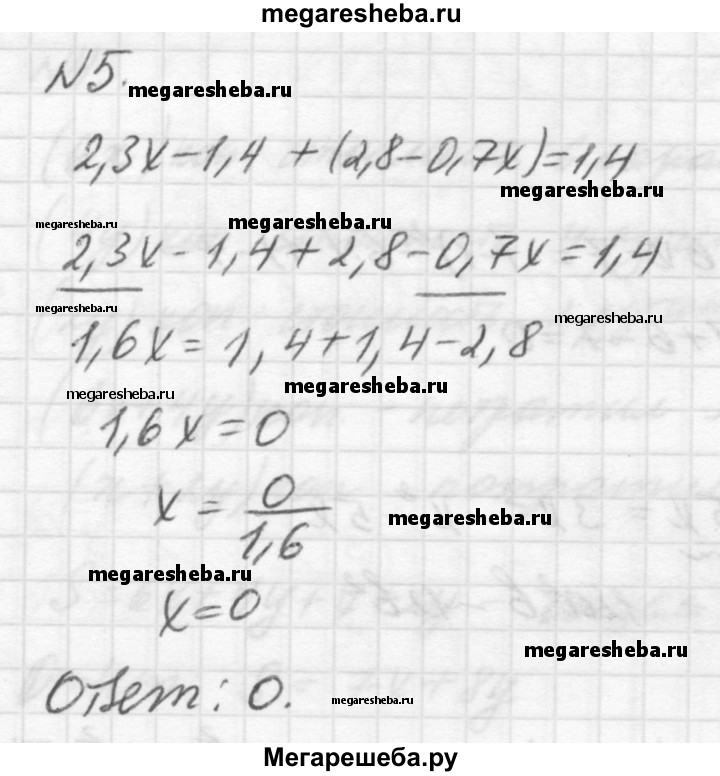 megaresheba.ru
№5. megaresheba.ru
2,3x-1,4 + (2,8-0,7x)=1,4
megaresheba.ru
megaresheba.ru megaresheba.ru
2,3x-1,4+2,8-0,7x=1,4
megaresheba.ru megaresheba.ru
1,6x=1,4+1,4-2,8
megaresheba.ru megaresheba.ru
1,6x=0
x = 0/1,6 megaresheba.ru
megaresheba.ru
x=0
megaresheba.ru
Ответ: 0. megaresheba.ru
Мегарешеба.ру